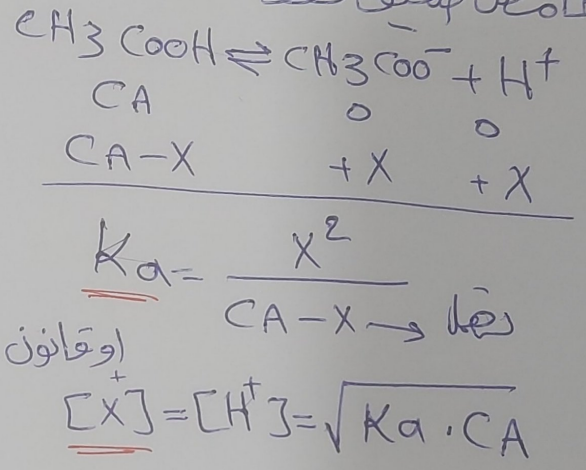 CH3COOH ⇌ CH3COO⁻ + H⁺
CA 0 0
CA-X +X +X
Ka = X² / (CA-X) →
او قانون
[X⁺] = [H⁺] = √Ka . CA